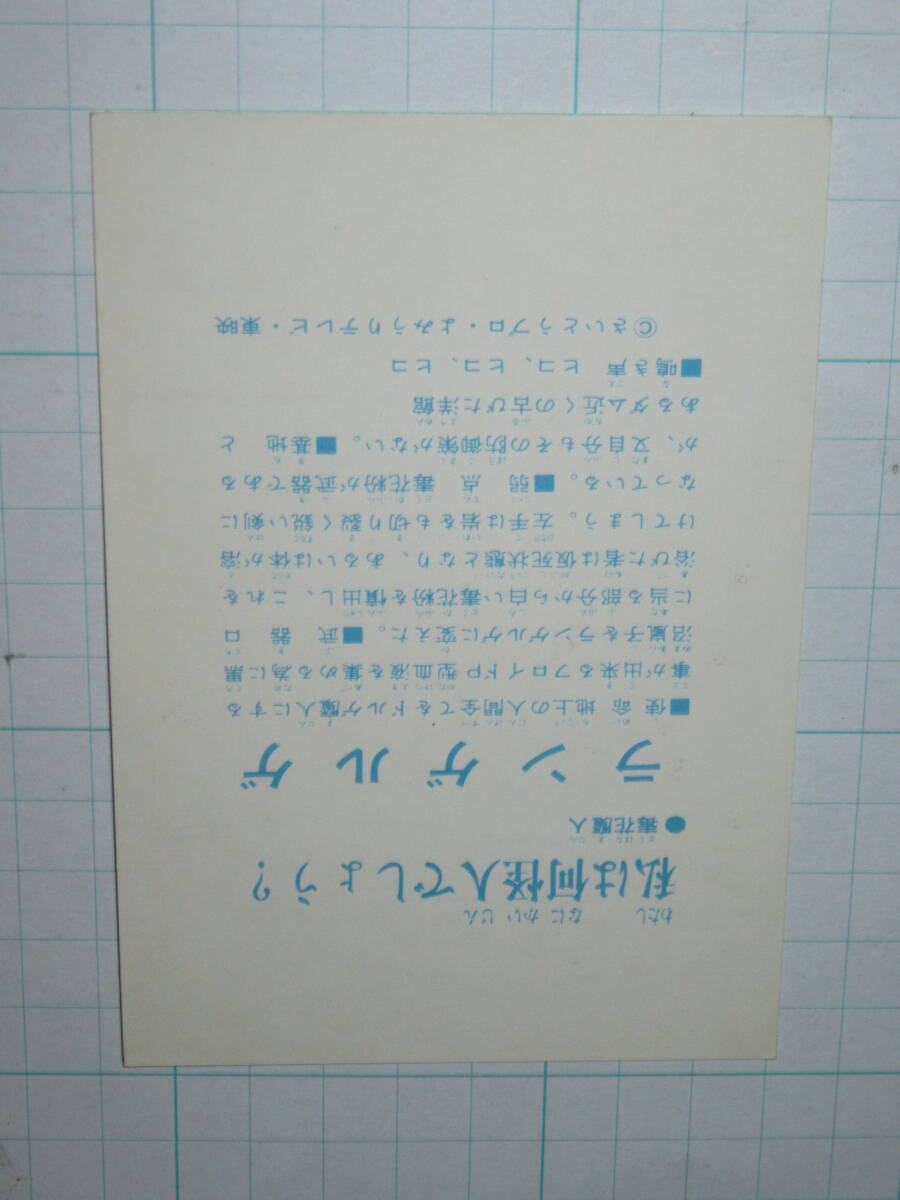 私は何怪人でしょう？
●毒花魔人
ランゲルゲ
■使命 地上の人間全てをドルゲ魔人にする
事が出来るフロイドP型血液を集める為に黒
沼嵐子をランゲルゲに変えた。■武器 口
に当る部分から白い毒花粉を憤出し、これを
浴びた者は仮死状態となり、あるいは体が溶
けてしまう。左手は岩をも切り裂く鋭い剣に
なっている。■弱点 毒花粉が武器である
が、又自分もその防御策がない。■基地 と
あるダム近くの古びた洋館
■鳴き声 ヒコ、ヒコ、ヒコ
©さいとうプロ・よみうりテレビ・東映